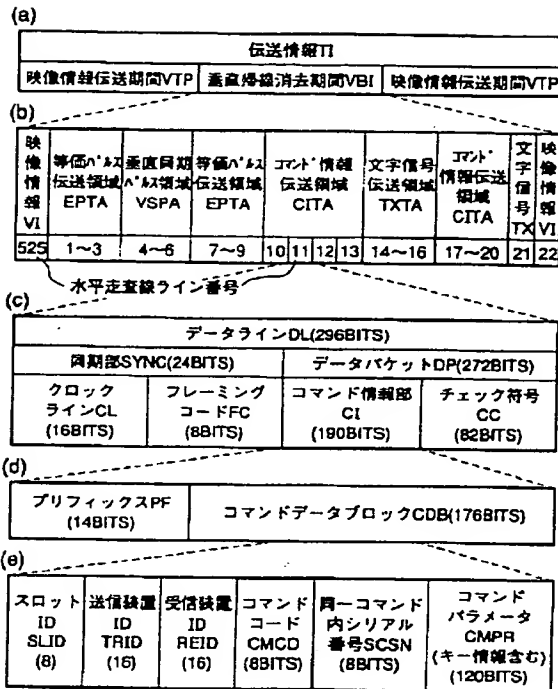 (a)
伝送情報TI
映像情報伝送期間VTP
垂直帰線消去期間VBI
映像情報伝送期間VTP
(b)
映像情報VI
等価パルス
伝送領域
EPTA
垂直同期
パルス領域
VSPA
等価パルス
伝送領域
EPTA
コマンド情報
伝送領域
CITA
文字信号
伝送領域
TXTA
コマンド
情報伝送
領域
CITA
文字信号TX
映像情報VI
525
1～3
4～6
7～9
10
11
12
13
14～16
17～20
21
22
水平走査線ライン番号
(c)
データラインDL(296BITS)
同期部SYNC(24BITS)
データパケットDP(272BITS)
クロック
ラインCL
(16BITS)
フレーミング
コードFC
(8BITS)
コマンド情報部
CI
(190BITS)
チェック符号
CC
(82BITS)
(d)
プリフィックスPF
(14BITS)
コマンドデータブロックCDB(176BITS)
(e)
スロット
ID
SLID
(8)
送信装置
ID
TRID
(16)
受信装置
ID
REID
(16)
コマンド
コード
CMCD
(8BITS)
同一コマンド
内シリアル
番号SCSN
(8BITS)
コマンド
パラメータ
CMPR
(キー情報含む)
(120BITS)